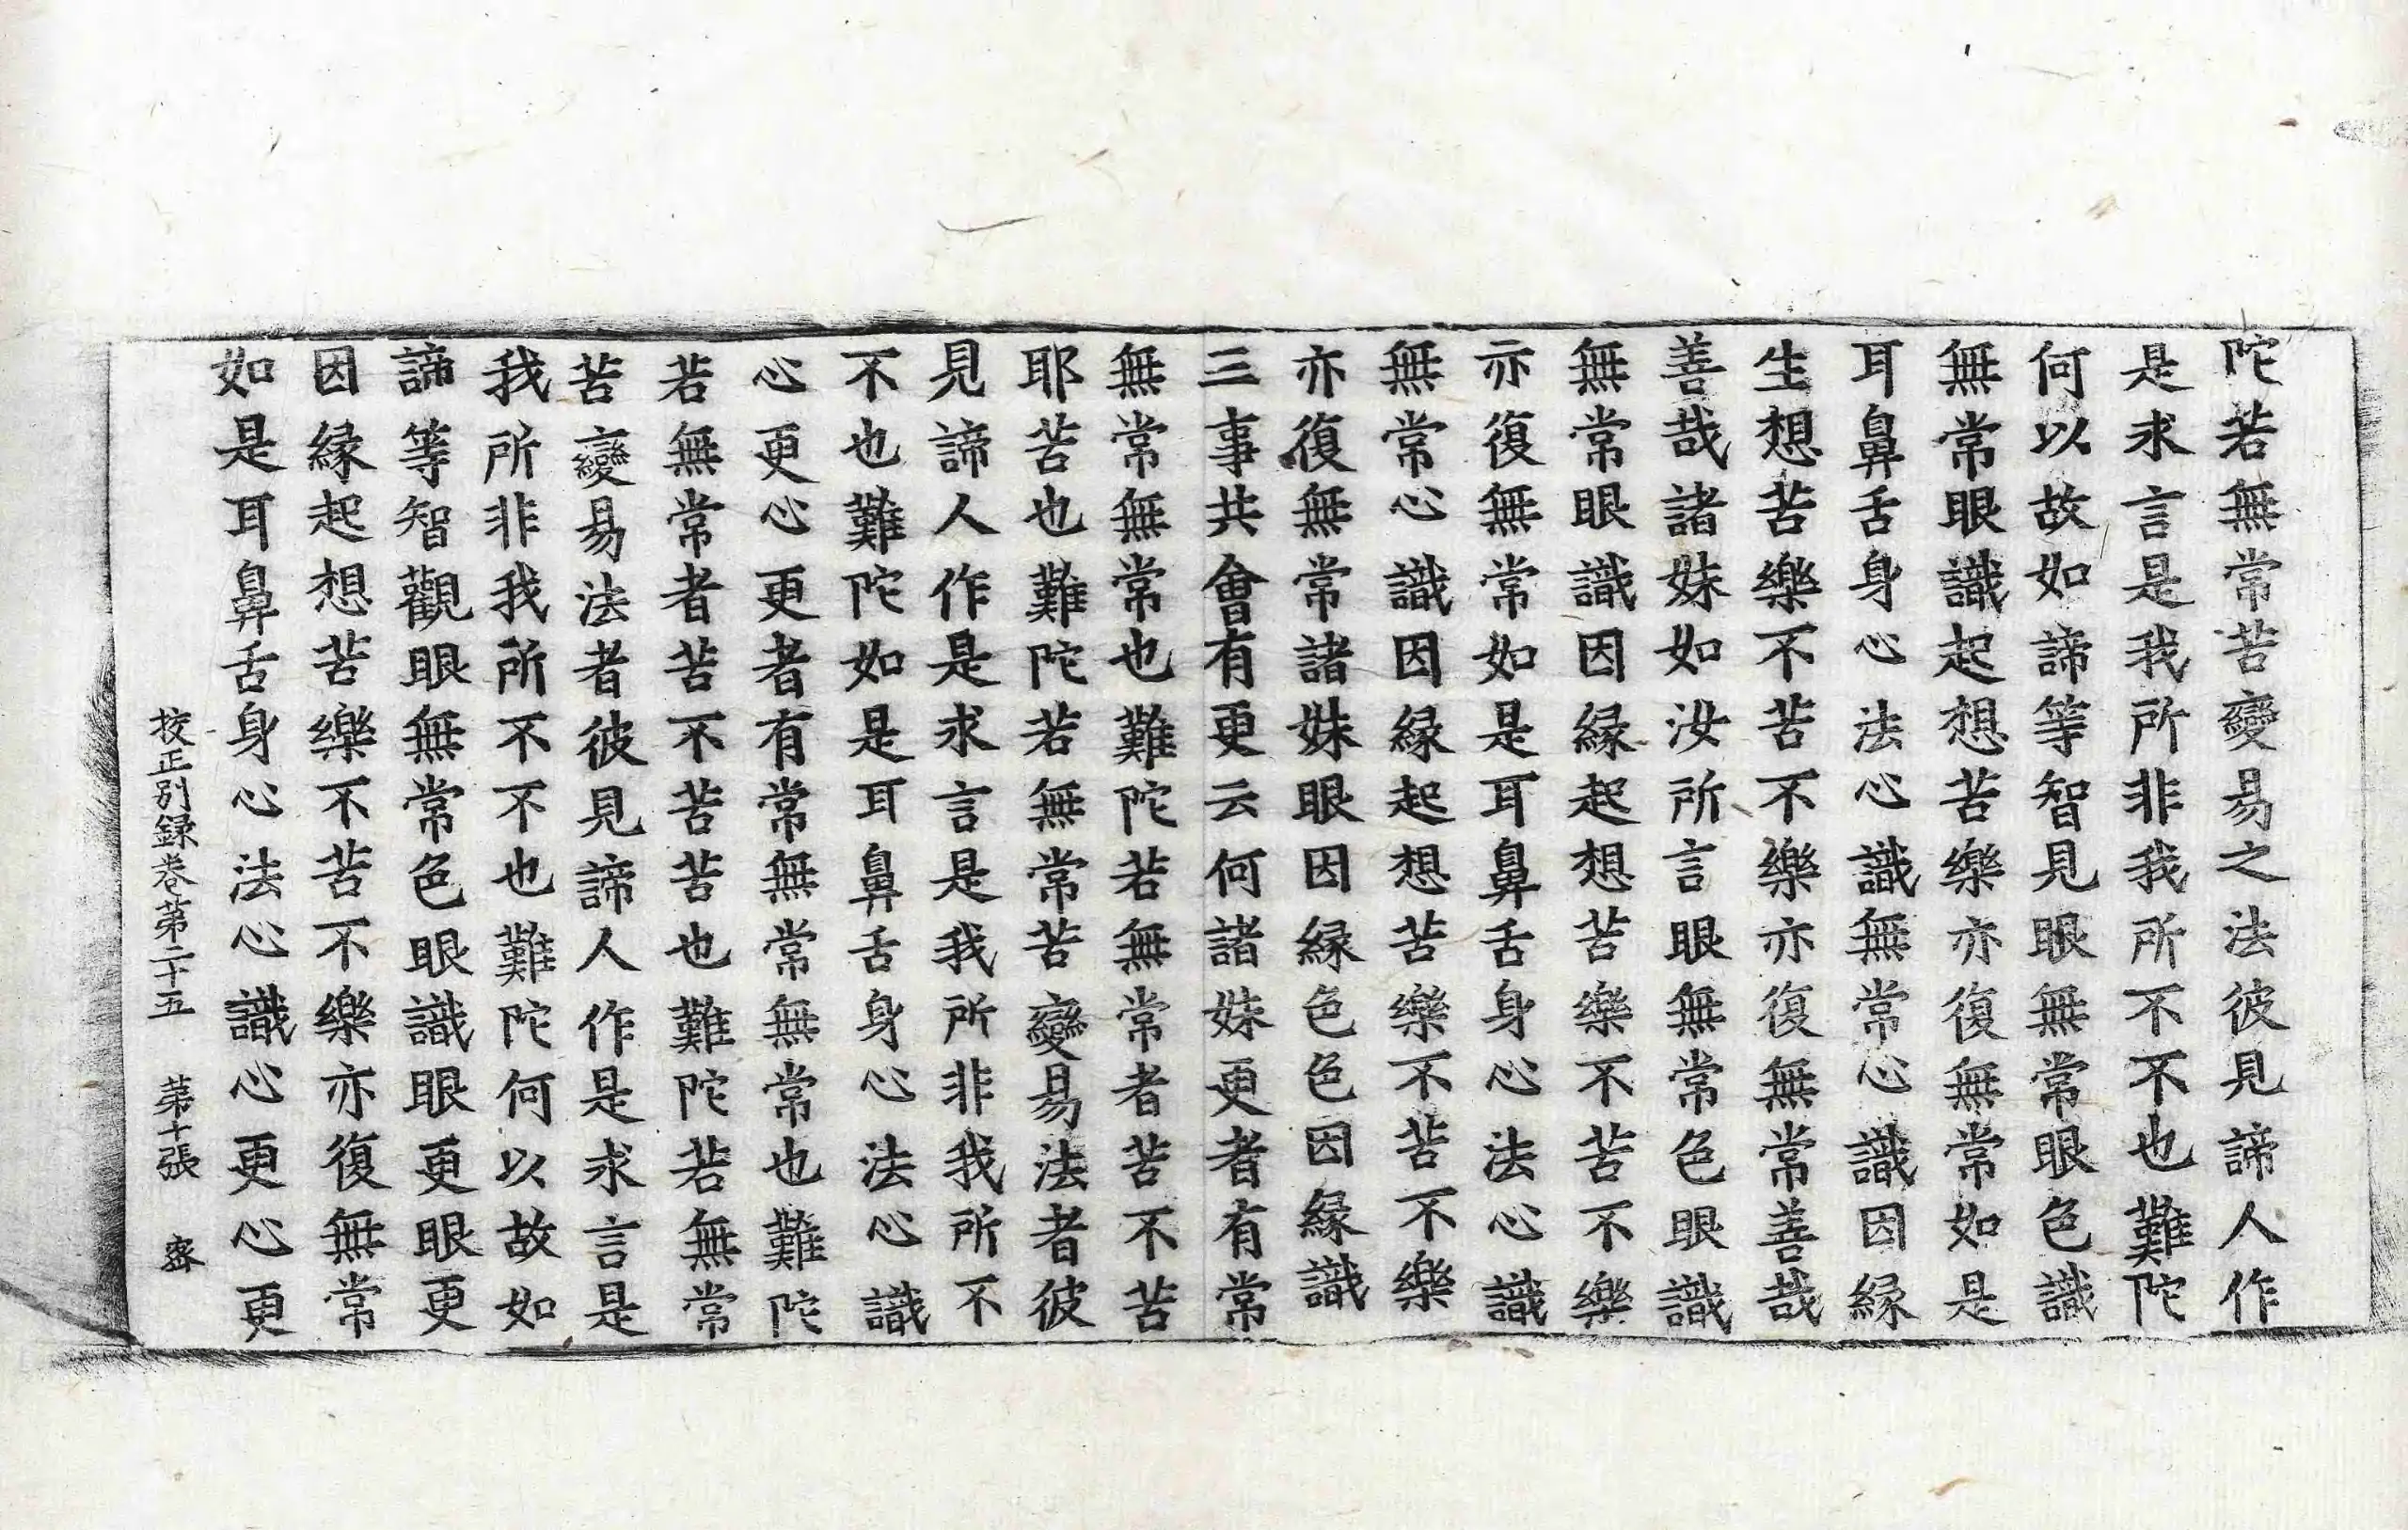 陀若無常苦變易之法彼見諦人作
是求言是我所非我所不不也難陀
何以故如諦等智見眼無常眼色識
無常眼識起想苦樂亦復無常如是
耳鼻舌身心法心識無常心識因縁
生想苦樂不苦不樂亦復無常善哉
善哉諸妹如汝所言眼無常色眼識
無常眼識因縁起想苦樂不苦不樂
亦復無常如是耳鼻舌身心法心識
無常心識因縁起想苦樂不苦不樂
亦復無常諸妹眼因縁色色因縁識
三事共會有更云何諸妹更者有常
無常無常也難陀若無常者苦不苦
耶苦也難陀若無常苦變易法者彼
見諦人作是求言是我所非我所不
不也難陀如是耳鼻舌身心法心識
心更心更者有常無常無常也難陀
若無常者苦不苦苦也難陀若無常
苦變易法者彼見諦人作是求言是
我所非我所不不也難陀何以故如
諦等智觀眼無常色眼識眼更眼更
因縁起想苦樂不苦不樂亦復無常
如是耳鼻舌身心法心識心更心更
校正別録卷第二十五 第十張 密